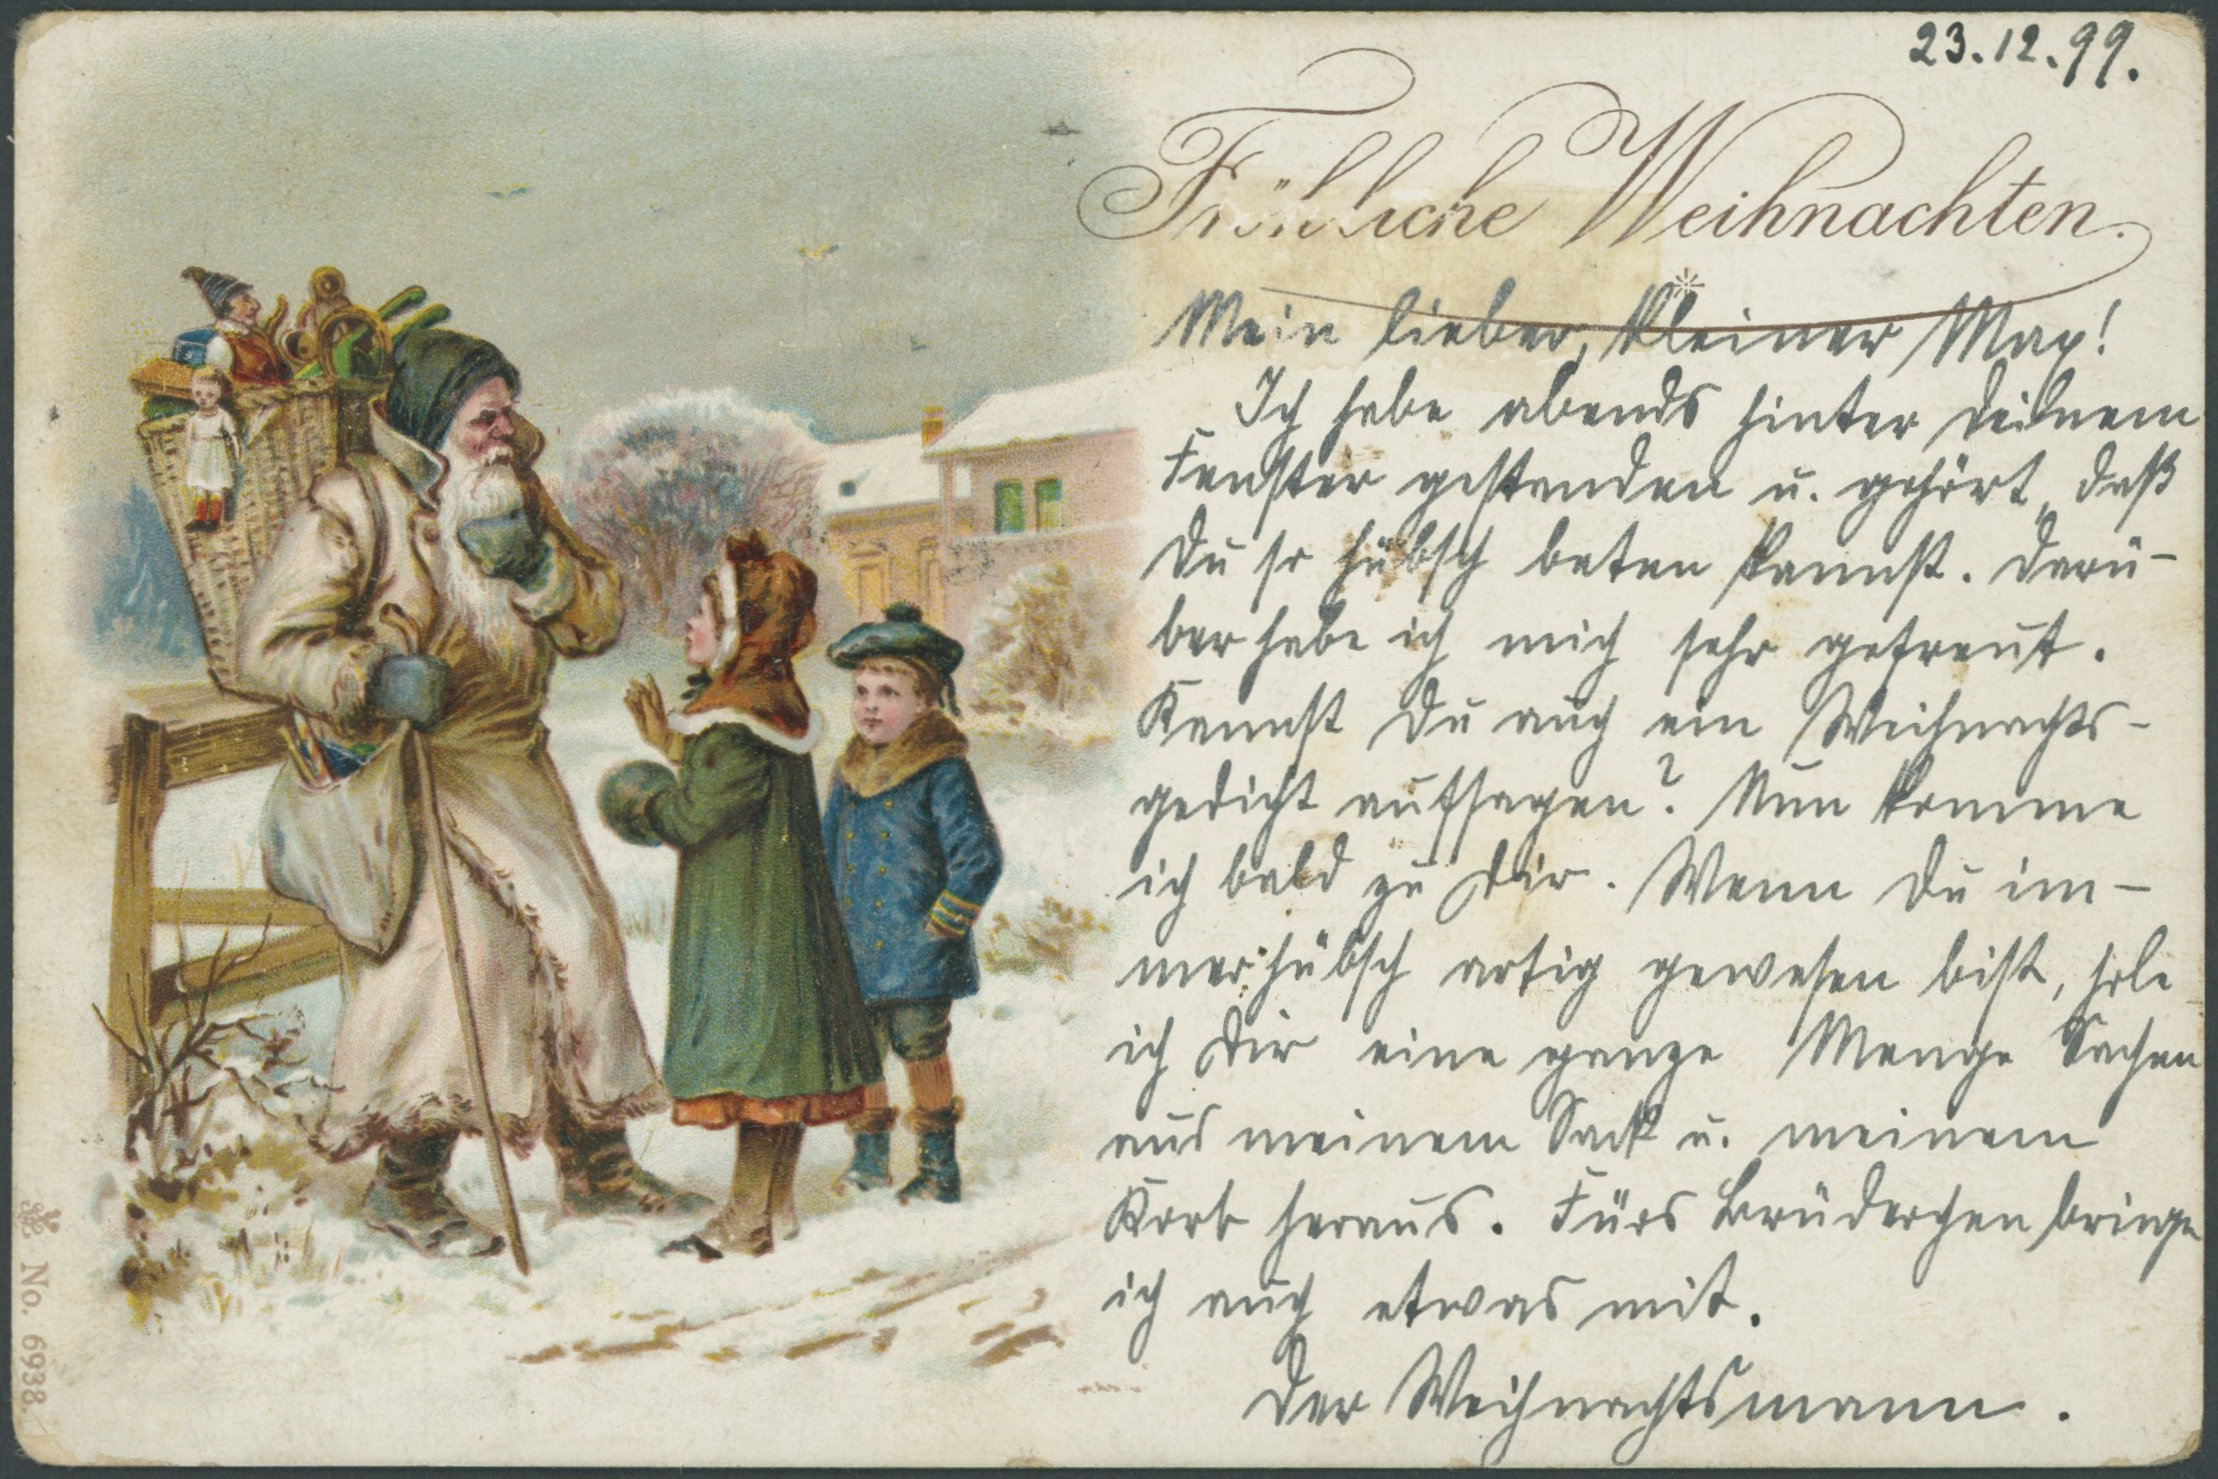 23.12.99.
Fröhliche Weihnachten.
Mein lieber, kleiner Max!
Ich habe abends hinter Deinem
Fenster gestanden u. gehört, daß
Du so hübsch beten kannst. Darü-
ber habe ich mich sehr gefreut.
Kannst Du auch ein Weihnachts-
gedicht aufsagen? Nun komme
ich bald zu Dir. Wenn Du im-
mer hübsch artig gewesen bist, hole
ich Dir eine ganze Menge Sachen
aus meinem Sack u. meinem
Korb heraus. Fürs Brüderchen bringe
ich auch etwas mit.
Der Weihnachtsmann.
No. 6938.